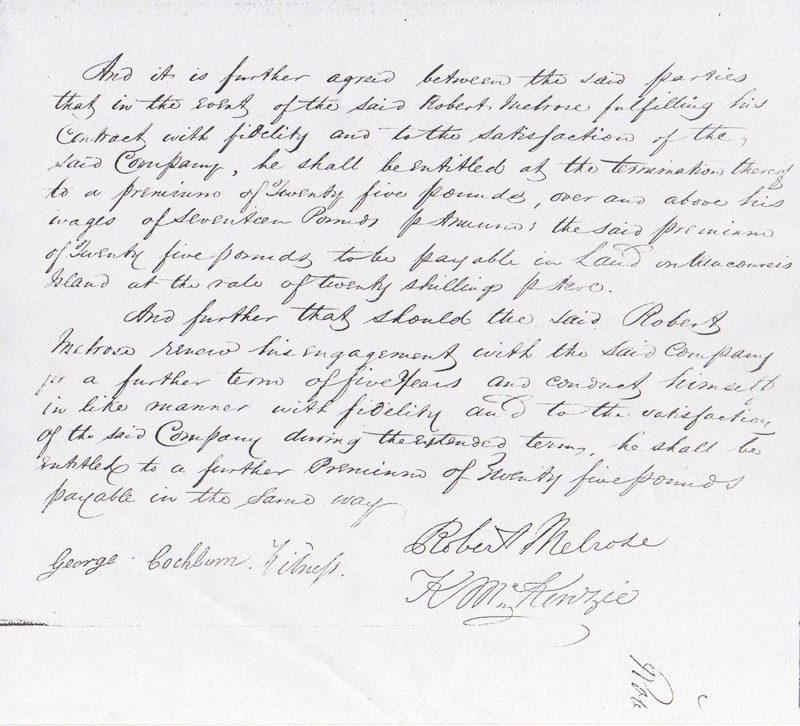 And it is further agreed between the said parties
that in the event of the said Robert Melrose fulfilling his
Contract with fidelity and to the satisfaction of the
said Company, he shall be entitled at the termination thereof
to a premium of Twenty five pounds, over and above his
wages of Seventeen Pounds p Annum; the said premium
of Twenty five pounds to be payable in Land on Vancouvers
Island at the rate of twenty shillings p Acre.
And further that should the said Robert
Melrose renew his engagement with the said Company
for a further term of five Years and conduct himself
in like manner with fidelity and to the satisfaction
of the said Company during the extended term, he shall be
entitled to a further Premium of Twenty five pounds
payable in the same way
Robert Melrose
George Cockburn. Witness.
K McKenzie